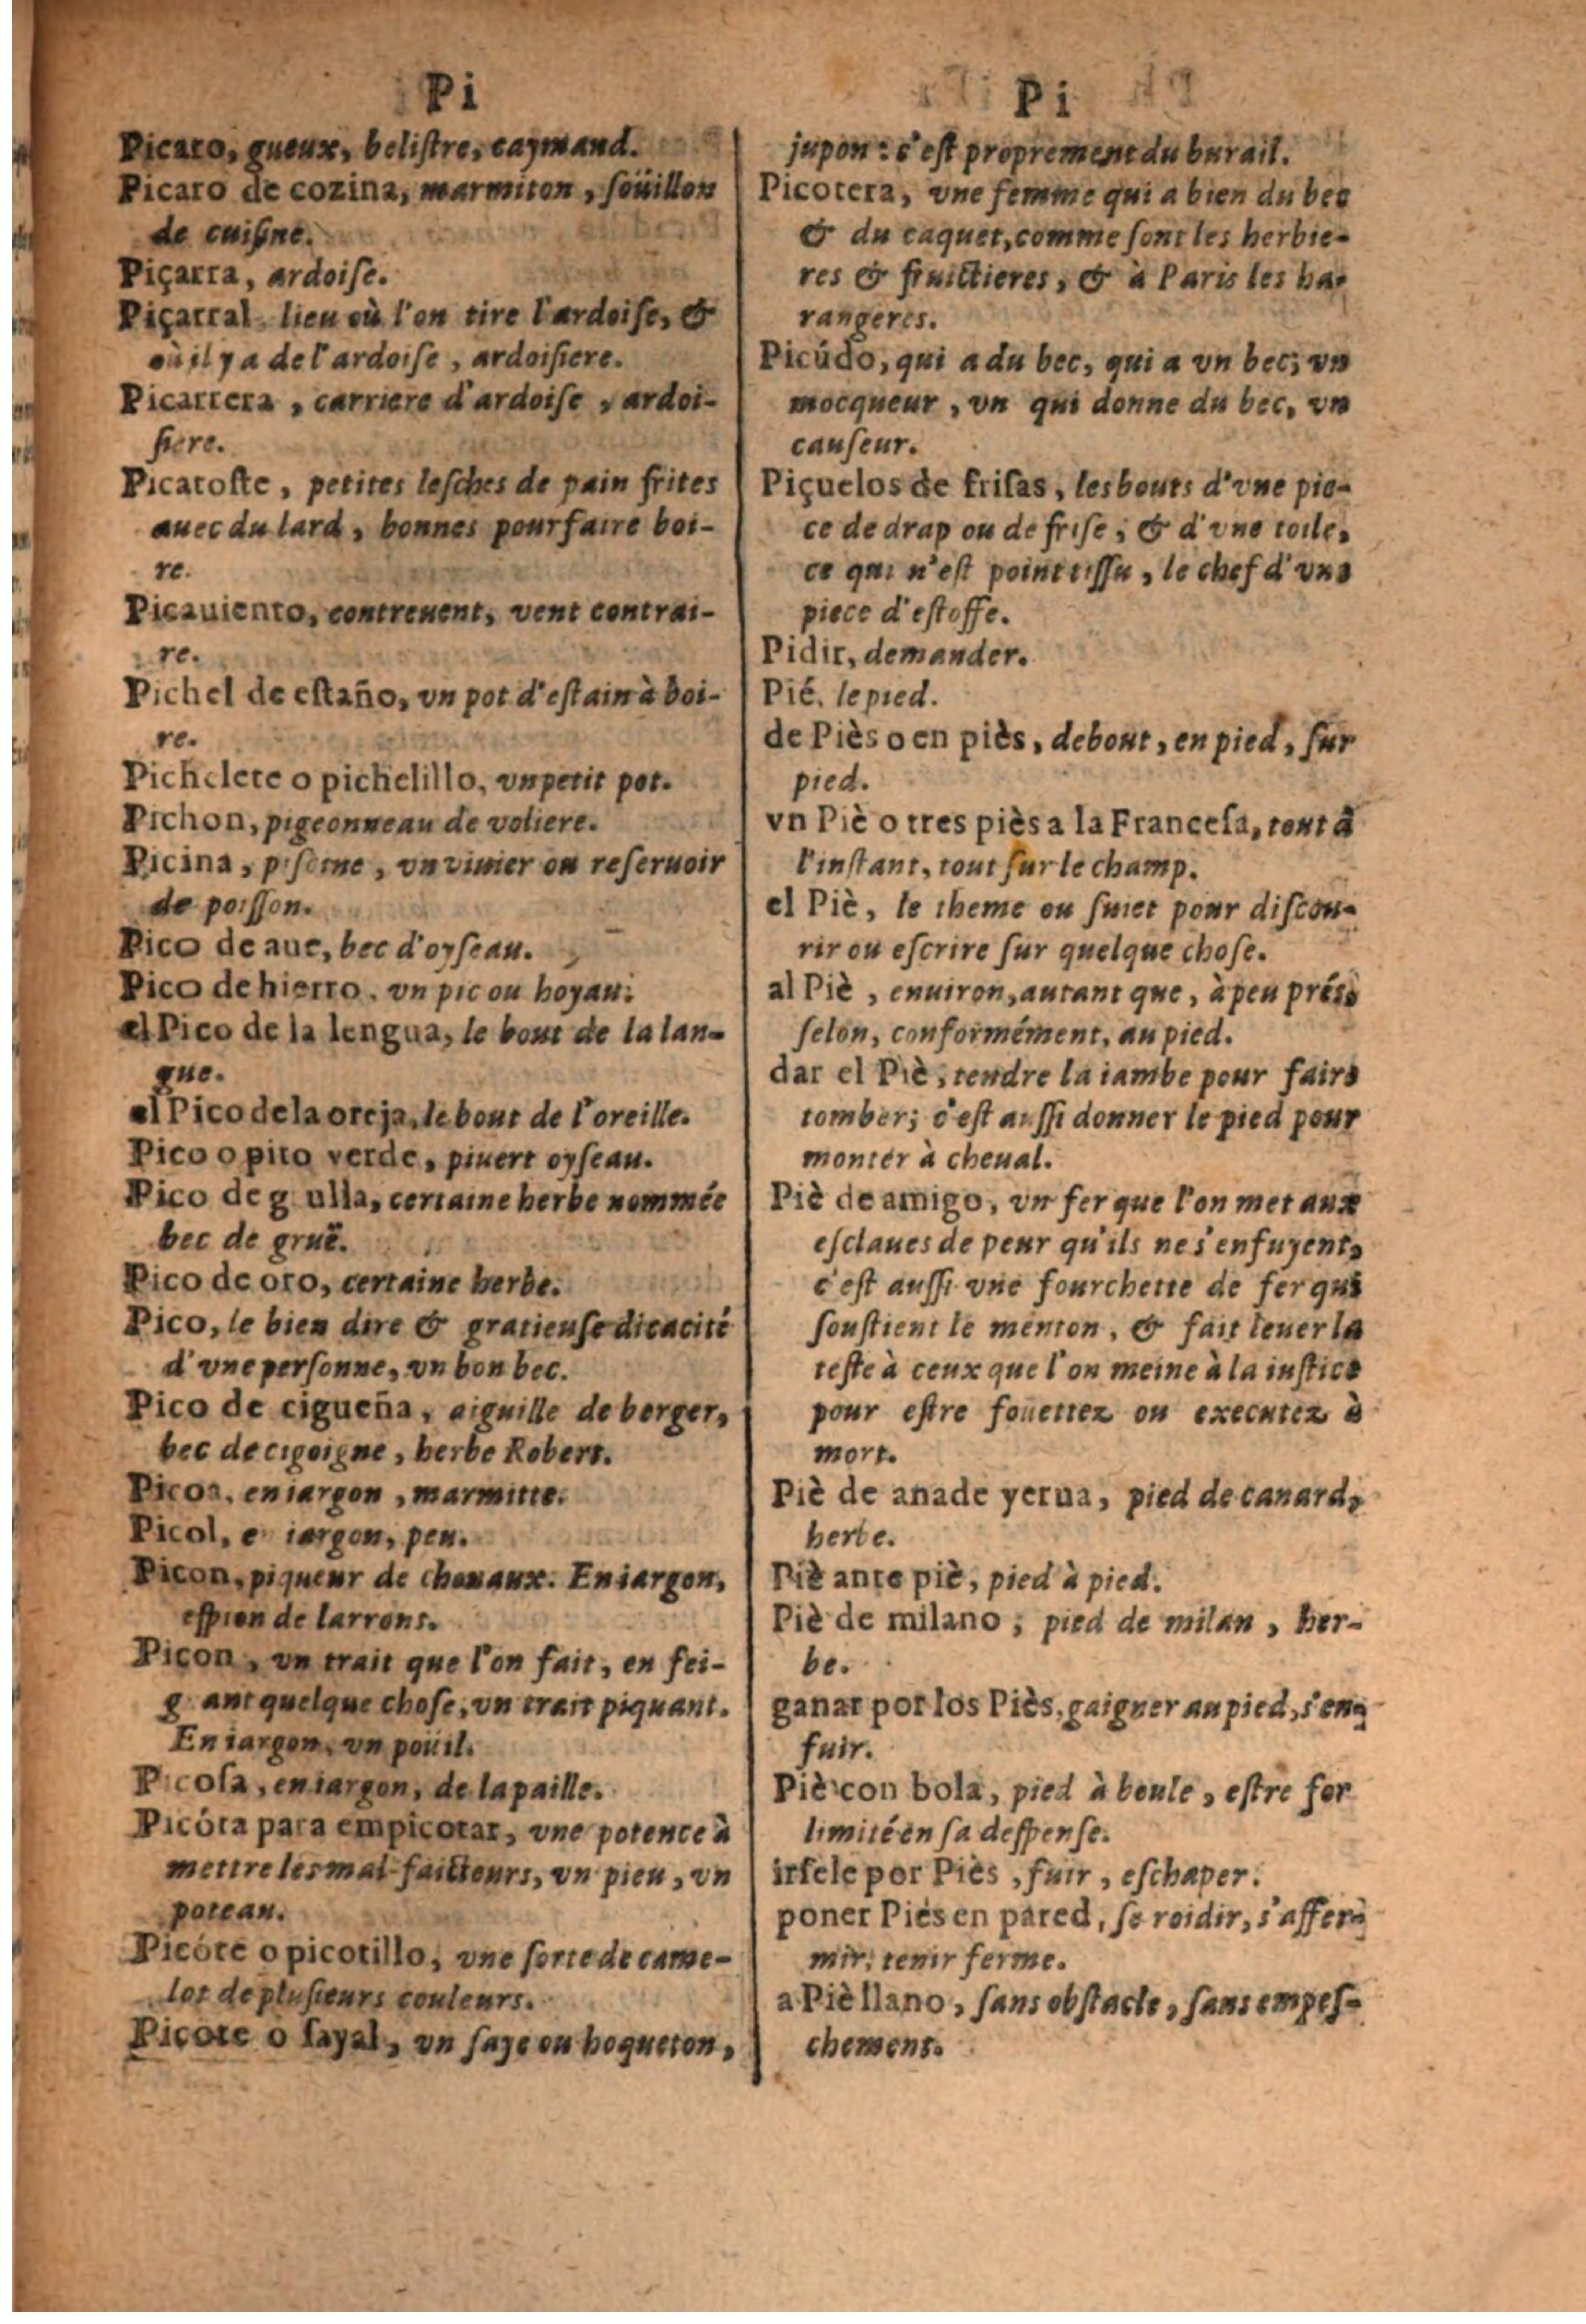 Pi
Picaro, gueux, beliſtre, caymand.
Picaro de cozina, marmiton, ſoüillon
de cuiſine.
Piçarra, ardoiſe.
Piçarral lieu où l'on tire l'ardoiſe, &
où il y a de l'ardoiſe, ardoiſiere.
Picarrera, carriere d'ardoiſe, ardoi-
ſiere.
Picatoſte, petites leſches de pain frites
auec du lard, bonnes pour faire boi-
re.
Picauiento, contreuent, vent contrai-
re.
Pichel de eſtaño, vn pot d'eſtain à boi-
re.
Pichelete o pichelillo, vn petit pot.
Pichon, pigeonneau de voliere.
Picina, piſcine, vn viuier ou reſeruoir
de poiſſon.
Pico de aue, bec d'oyſeau.
Pico de hierro, vn pic ou hoyau:
el Pico de la lengua, le bout de la lan-
gue.
el Pico de la oreja, le bout de l'oreille.
Pico o pito verde, piuert oyſeau.
Pico de g ulla, certaine herbe nommée
bec de gruë.
Pico de oro, certaine herbe.
Pico, le bien dire & gratieuſe dicacité
d'vne perſonne, vn bon bec.
Pico de cigueña, aiguille de berger,
bec de cigoigne, herbe Robert.
Picoa, en iargon, marmitte.
Picol, e iargon, peu.
Picon, piqueur de cheuaux. En iargon,
eſpion de larrons.
Picon, vn trait que l'on fait, en fei-
g ant quelque choſe, vn trait piquant.
En iargon, vn poüil.
Picoſa, en iargon, de la paille.
Picóta para empicotar, vne potence à
mettre les mal-faicteurs, vn pieu, vn
poteau.
Picóte o picotillo, vne ſorte de came-
lot de pluſieurs couleurs.
Picote o ſayal, vn ſaye ou hoqueton,
Pi
jupon: c'eſt proprement du burail.
Picotera, vne femme qui a bien du bec
& du caquet, comme ſont les herbie-
res & fruictieres, & à Paris les ha-
rangeres.
Picúdo, qui a du bec, qui a vn bec; vn
mocqueur, vn qui donne du bec, vn
cauſeur.
Piçuelos de friſas, les bouts d'vne pie-
ce de drap ou de friſe, & d'vne toile,
ce qui n'eſt point tiſſu, le chef d'vne
piece d'eſtoffe.
Pidir, demander.
Pié, le pied.
de Piès o en piès, debout, en pied, ſur
pied.
vn Piè o tres piès a la Franceſa, tout à
l'inſtant, tout ſur le champ.
el Piè, le theme ou ſuiet pour diſcou-
rir ou eſcrire ſur quelque choſe.
al Piè, enuiron, autant que, à peu prés,
ſelon, conformément, au pied.
dar el Piè, tendre la iambe pour faire
tomber; c'eſt auſſi donner le pied pour
monter à cheual.
Piè de amigo, vn fer que l'on met aux
eſclaues de peur qu'ils ne s'enfuyent,
c'eſt auſſi vne fourchette de fer qui
ſouſtient le menton, & fait leuer la
teſte à ceux que l'on meine à la iuſtice
pour eſtre foüettez ou executez à
mort.
Piè de anade yerua, pied de canard,
herbe.
Piè ante piè, pied à pied.
Piè de milano, pied de milan, her-
be.
ganar por los Piès, gaigner au pied, s'en-
fuir.
Piè con bola, pied à boule, eſtre for
limité en ſa deſpenſe.
irſele por Piès, fuir, eſchaper.
poner Piès en pared, ſe roidir, s'affer-
mir, tenir ferme.
a Piè llano, ſans obſtacle, ſans empeſ-
chement.